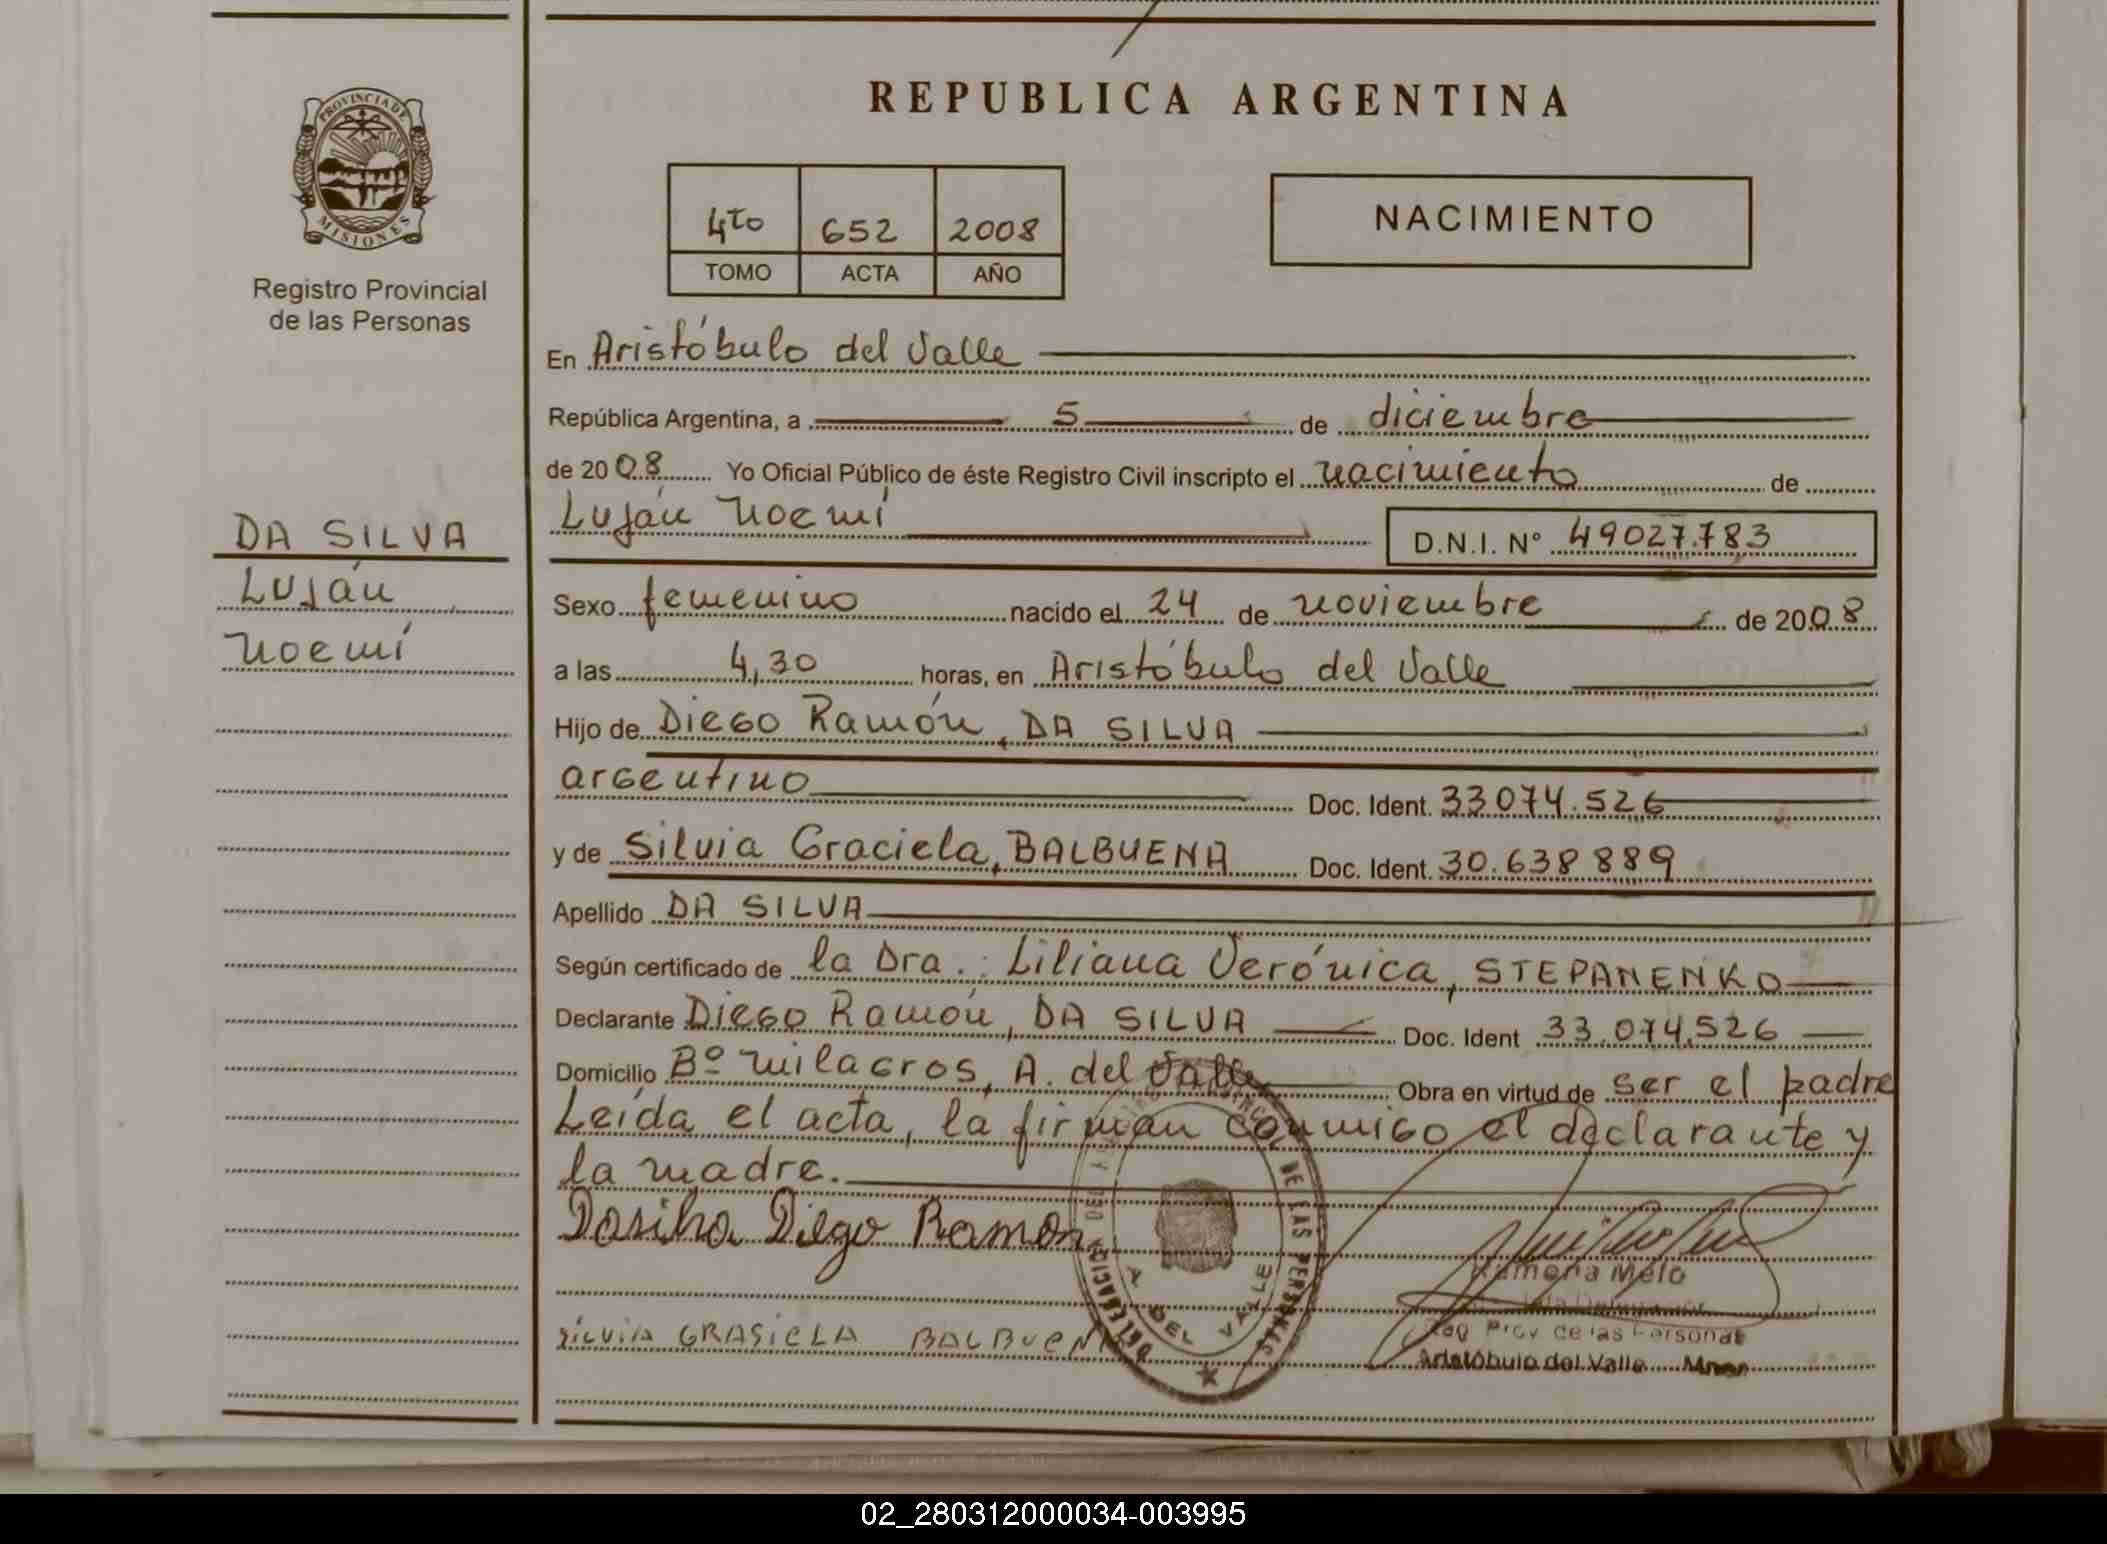 REPUBLICA ARGENTINA
PROVINCIA DE
MISIONES
Registro Provincial
de las Personas
4to 652 2008
TOMO ACTA AÑO
NACIMIENTO
En Aristóbulo del Valle
República Argentina, a 5 de diciembre
de 2008 Yo Oficial Público de éste Registro Civil inscripto el nacimiento de
Luján Noemí D.N.I. N° 49027.783
DA SILVA
Luján
Noemí
Sexo femenino nacido el 24 de noviembre de 2008
a las 4,30 horas, en Aristóbulo del Valle
Hijo de Diego Ramón, DA SILVA
argentino Doc. Ident. 33074.526
y de Silvia Graciela, BALBUENA Doc. Ident. 30.638889
Apellido DA SILVA
Según certificado de la Dra.: Liliana Verónica, STEPANENKO
Declarante Diego Ramón, DA SILVA Doc. Ident 33.074.526
Domicilio Bº Milagros, A. del Valle Obra en virtud de ser el padre
Leída el acta, la firman conmigo el declarante y
la madre.
Dasilva Diego Ramon
SILVIA GRASIELA BALBUENA
DE LAS PERSONAS
DELEGACION
A DEL VALLE
Ximena Melo
Reg Prov. de las Personas
Aristóbulo del Valle Mnes
02_280312000034-003995